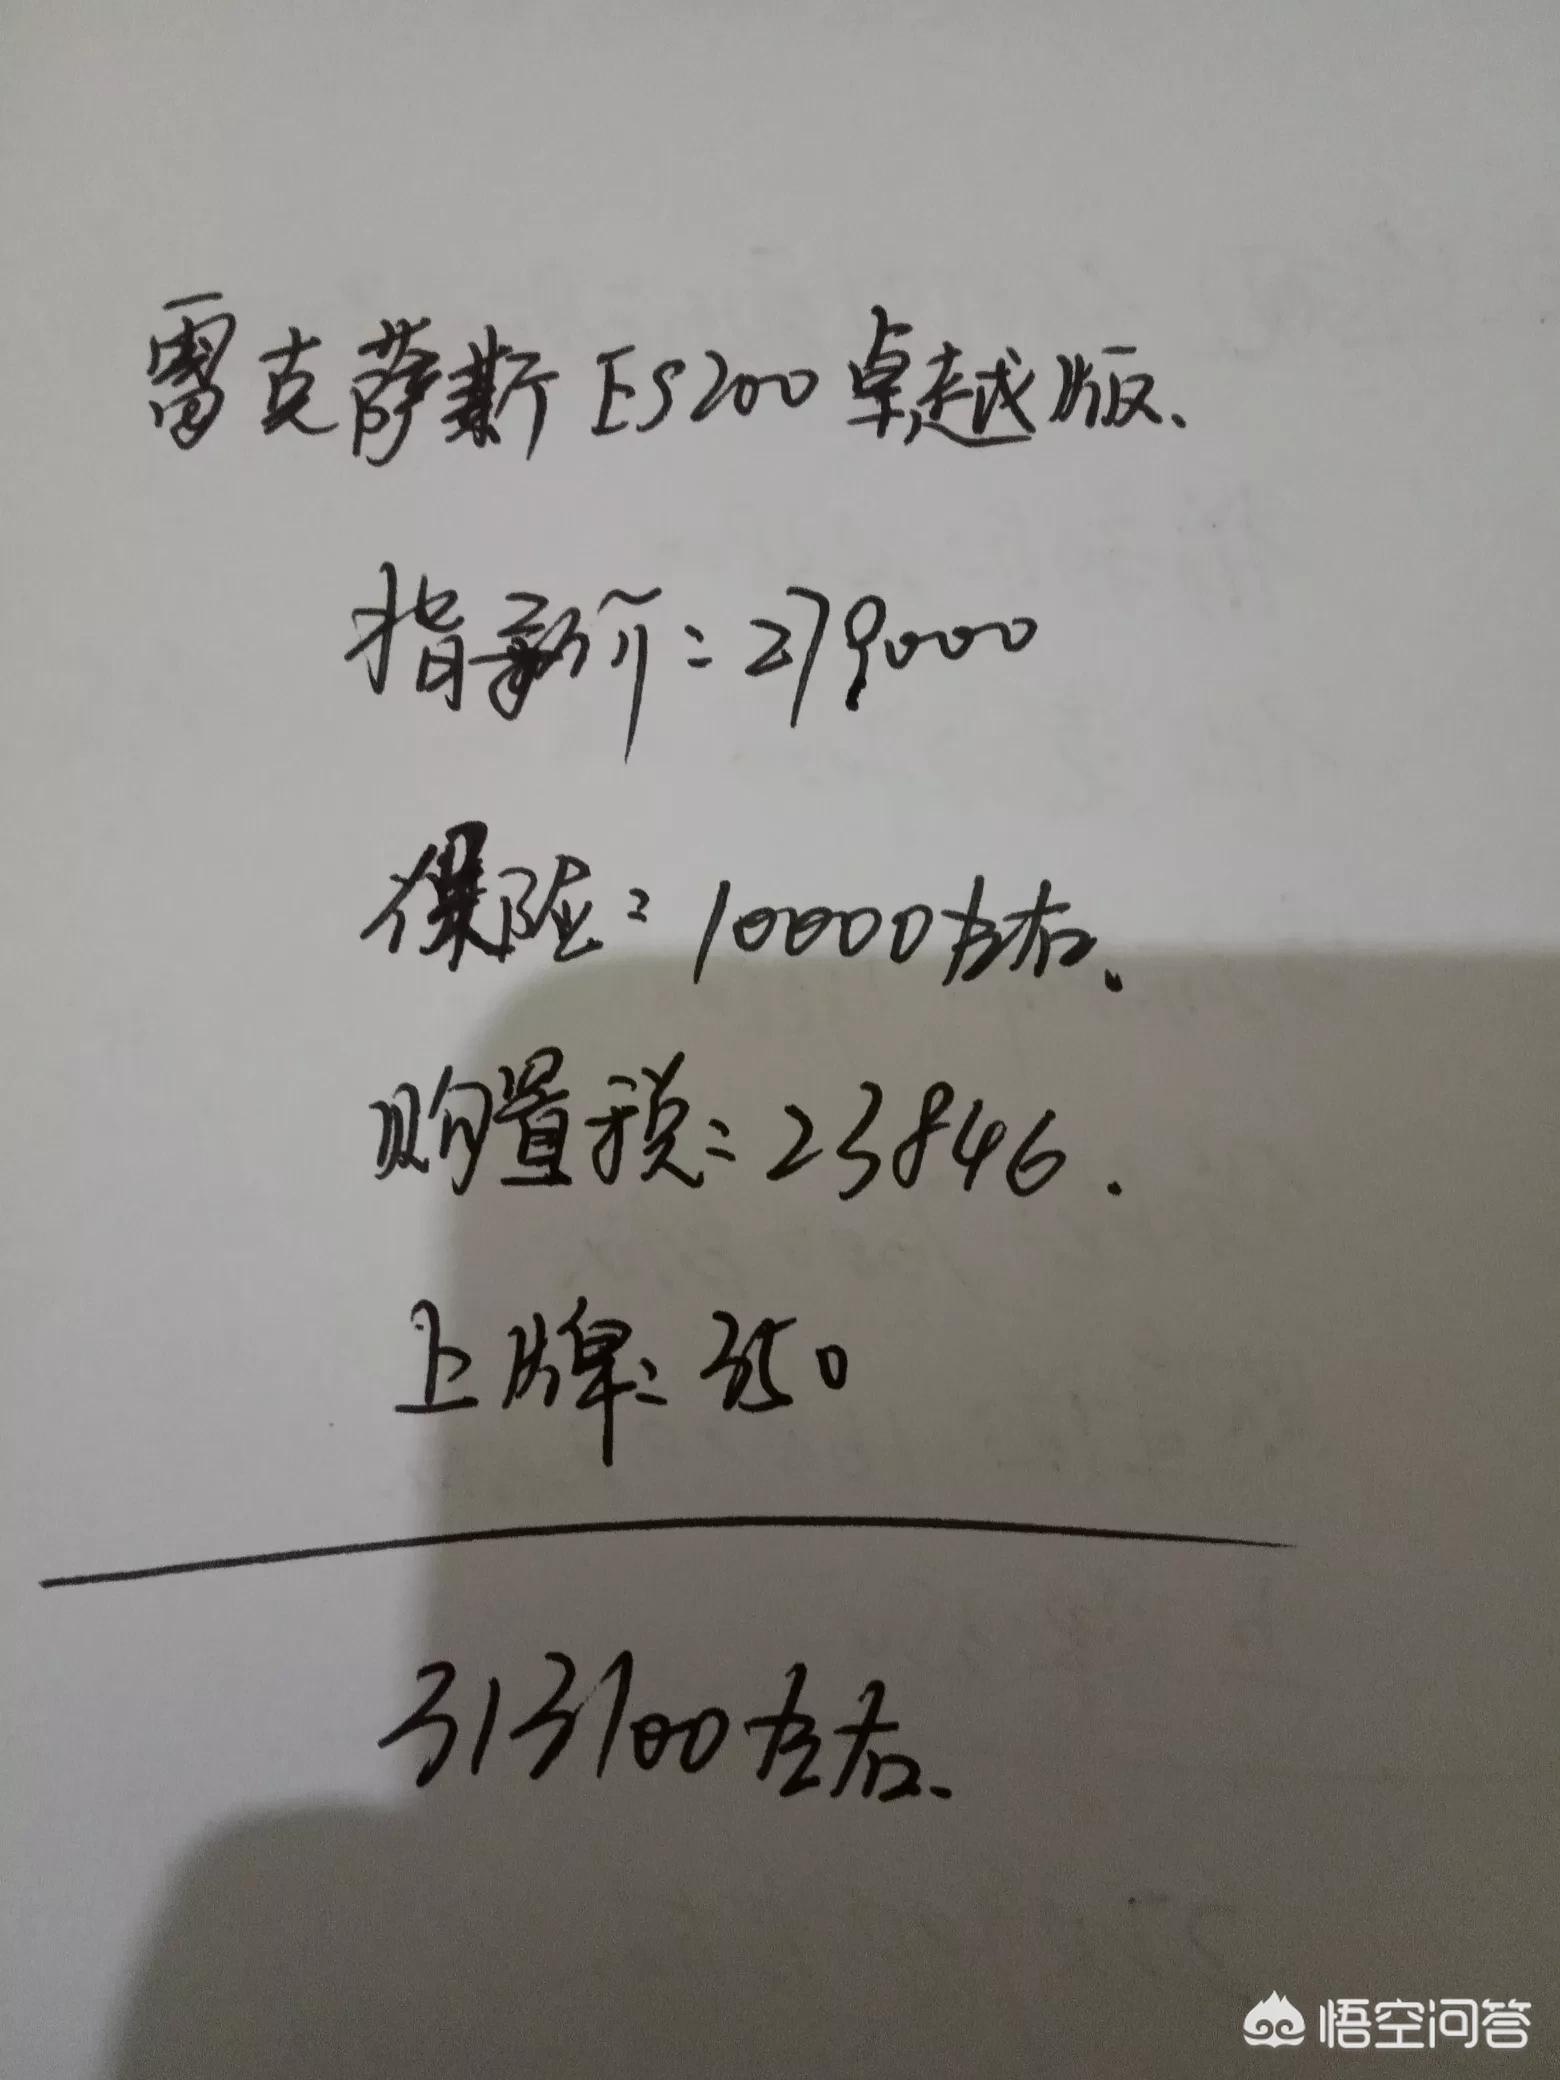 雷克萨斯ES200卓越版、
指导价：279000
保险：10000左右、
购置税：23846.
上牌：350
313100左右、
悟空问答